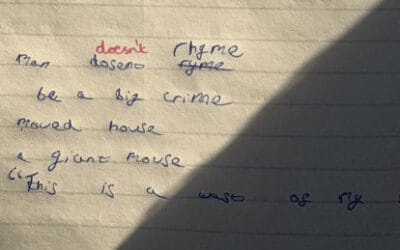 doesn't rhyme
Man doseno ryme
be a big crime
moved house
a giant mouse
"This is a wast of my